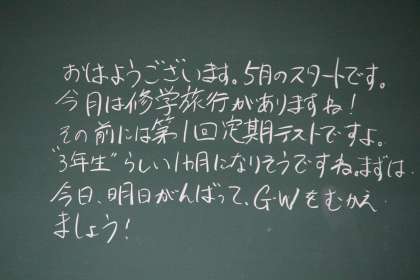 おはようございます。5月のスタートです。
今月は修学旅行がありますね！
その前には第1回定期テストですよ。
"3年生"らしい1カ月になりそうですね。まずは、
今日、明日がんばって、G・Wをむかえ
ましょう！